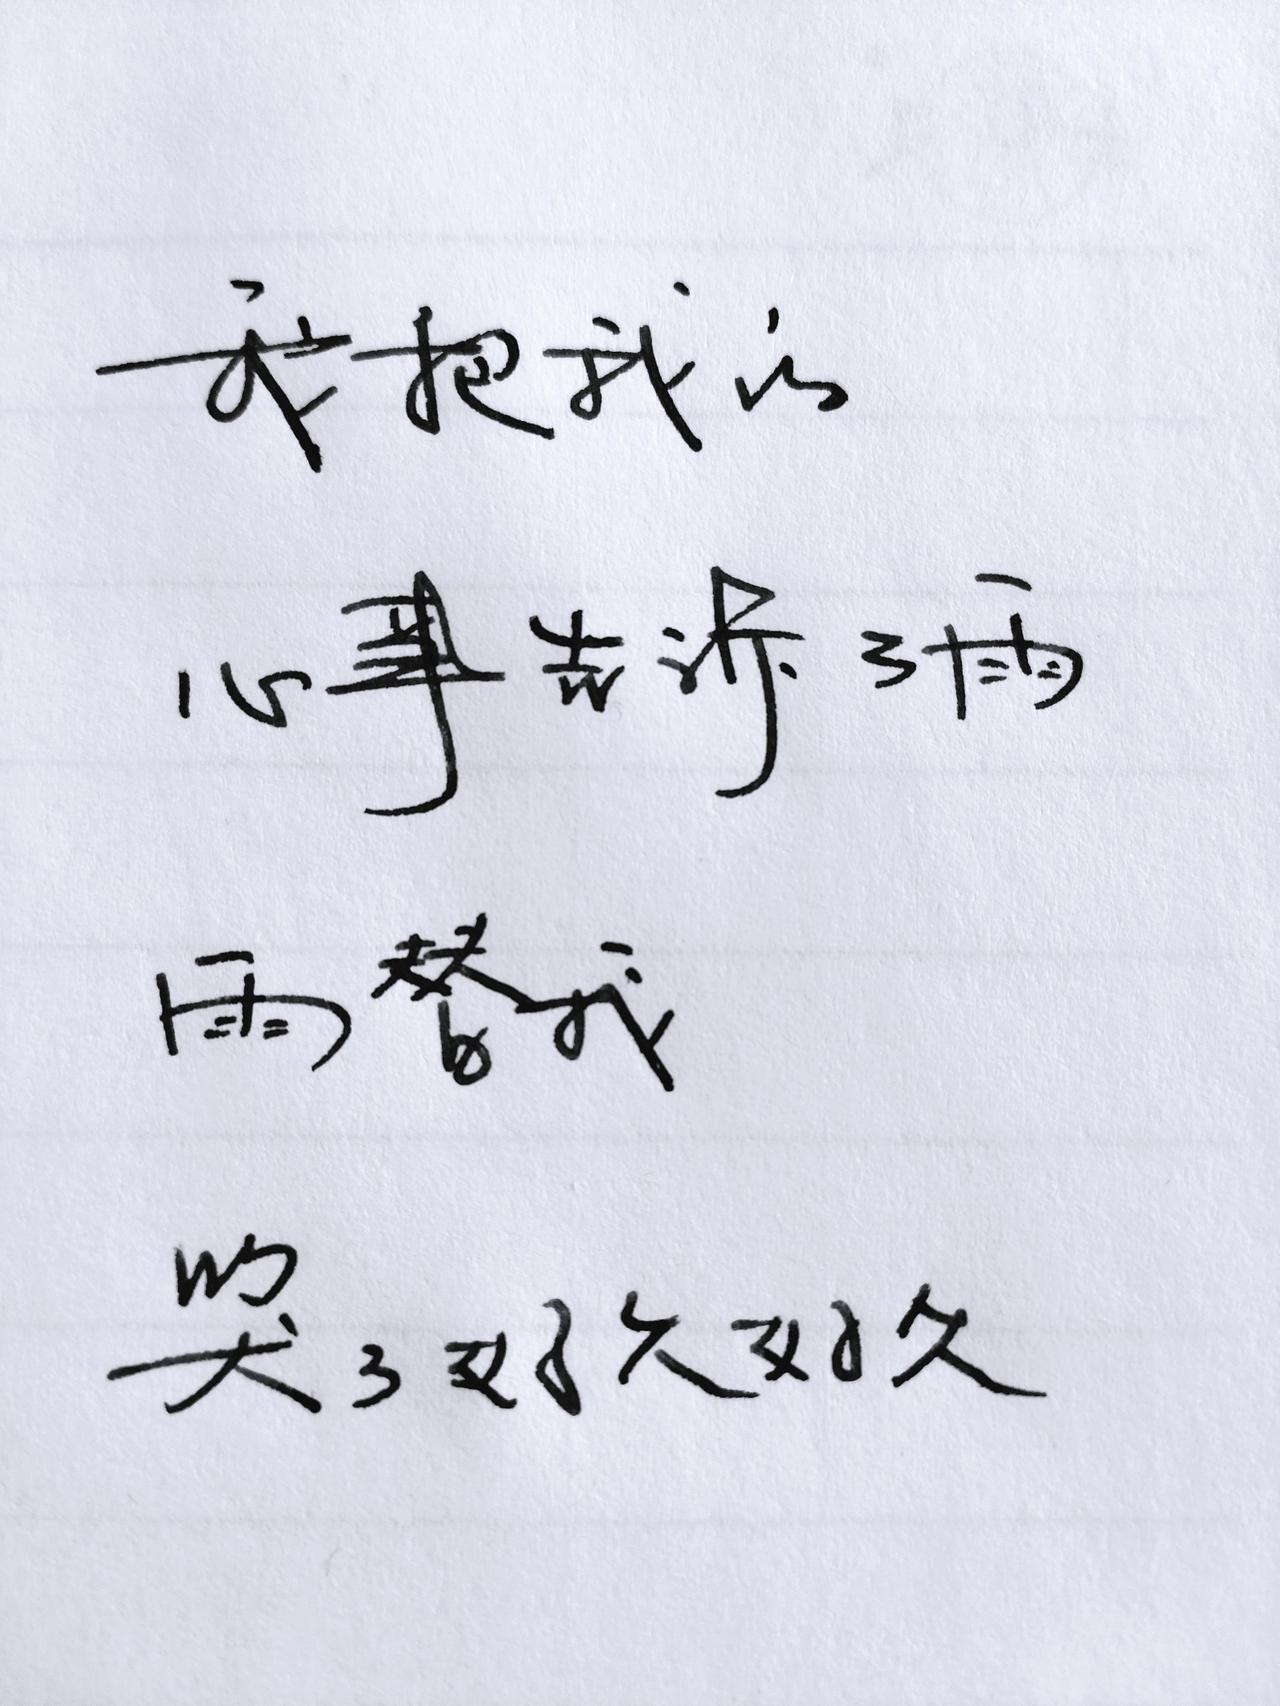 我把我的
心事告诉了雨
雨替我
哭了好久好久